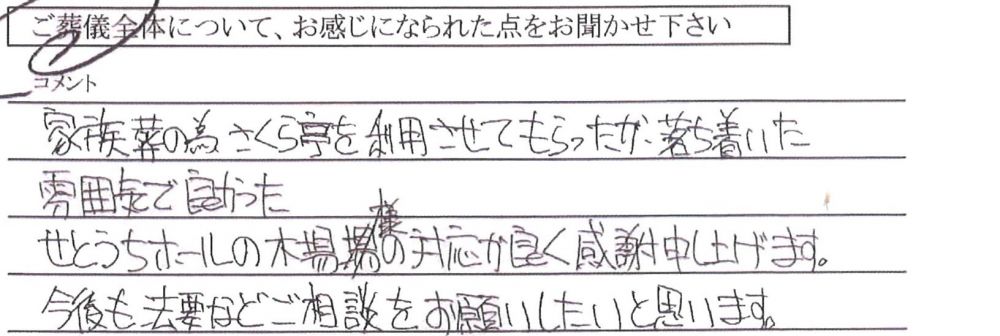 ご葬儀全体について、お感じになられた点をお聞かせ下さい
コメント
家族葬の為さくら亭を利用させてもらったが、落ち着いた
雰囲気で良かった
せとうちホールの木場様の対応が良く感謝申し上げます。
今後も法要などご相談をお願いしたいと思います。